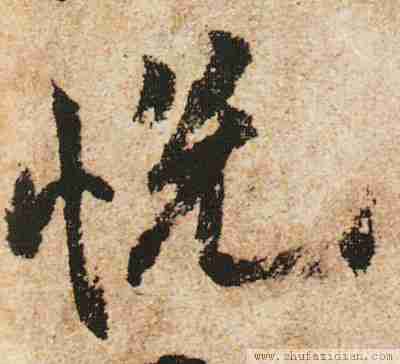 悦
www.shufazidian.com